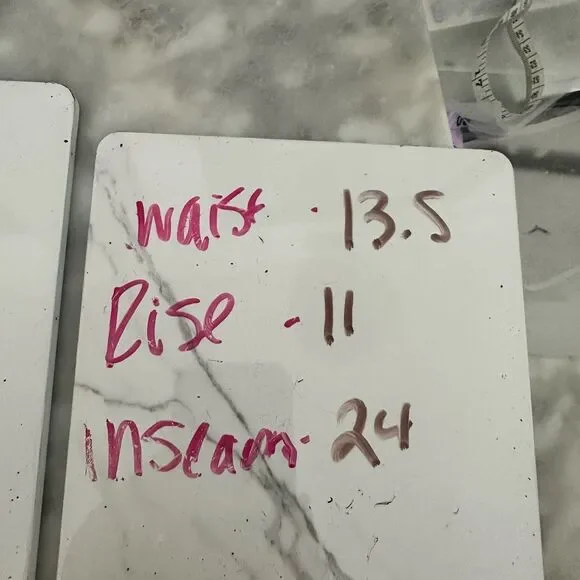 waist · 13.5
Rise - 11
Inseam · 24